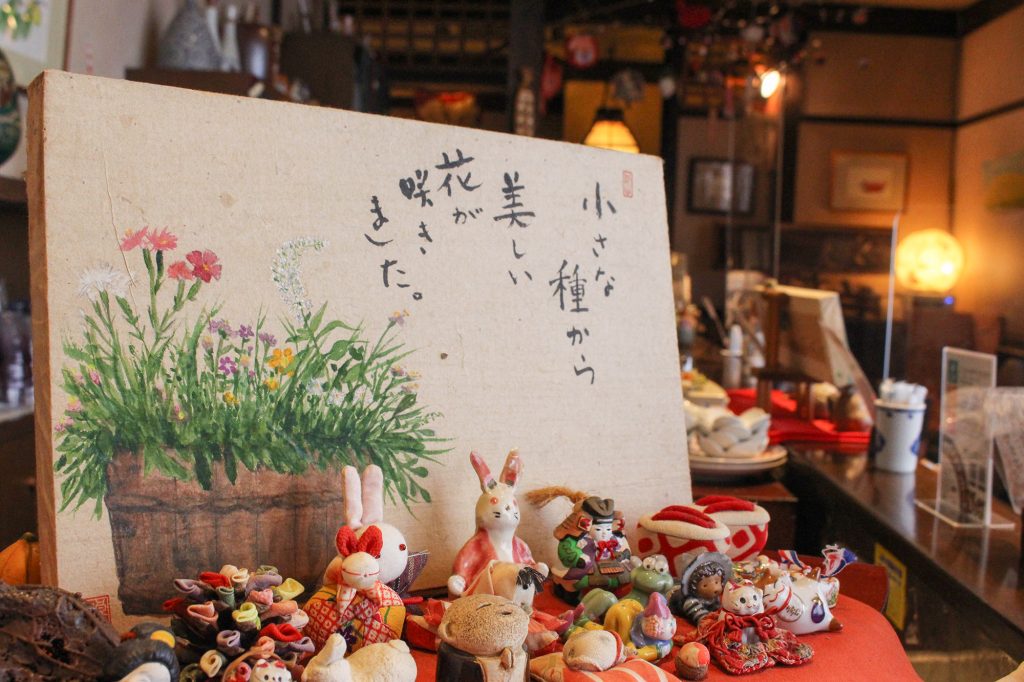 小さな
種から
美しい
花が
咲き
ました。